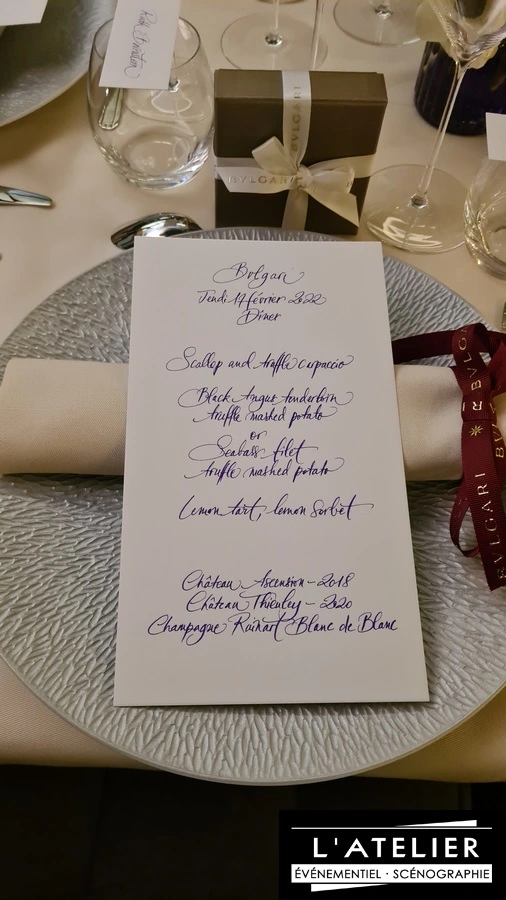 BVLGARI
BVLGARI
Bvlgari
Jeudi 17 février 2022
Dîner
Scallop and truffle carpaccio
Black Angus tenderloin
truffle mashed potato
or
Seabass filet
truffle mashed potato
Lemon tart, lemon sorbet
Château Ascension - 2018
Château Thieuley - 2020
Champagne Ruinart Blanc de Blanc
BVLGARI
BVLGARI
L'ATELIER
ÉVÉNEMENTIEL · SCÉNOGRAPHIE